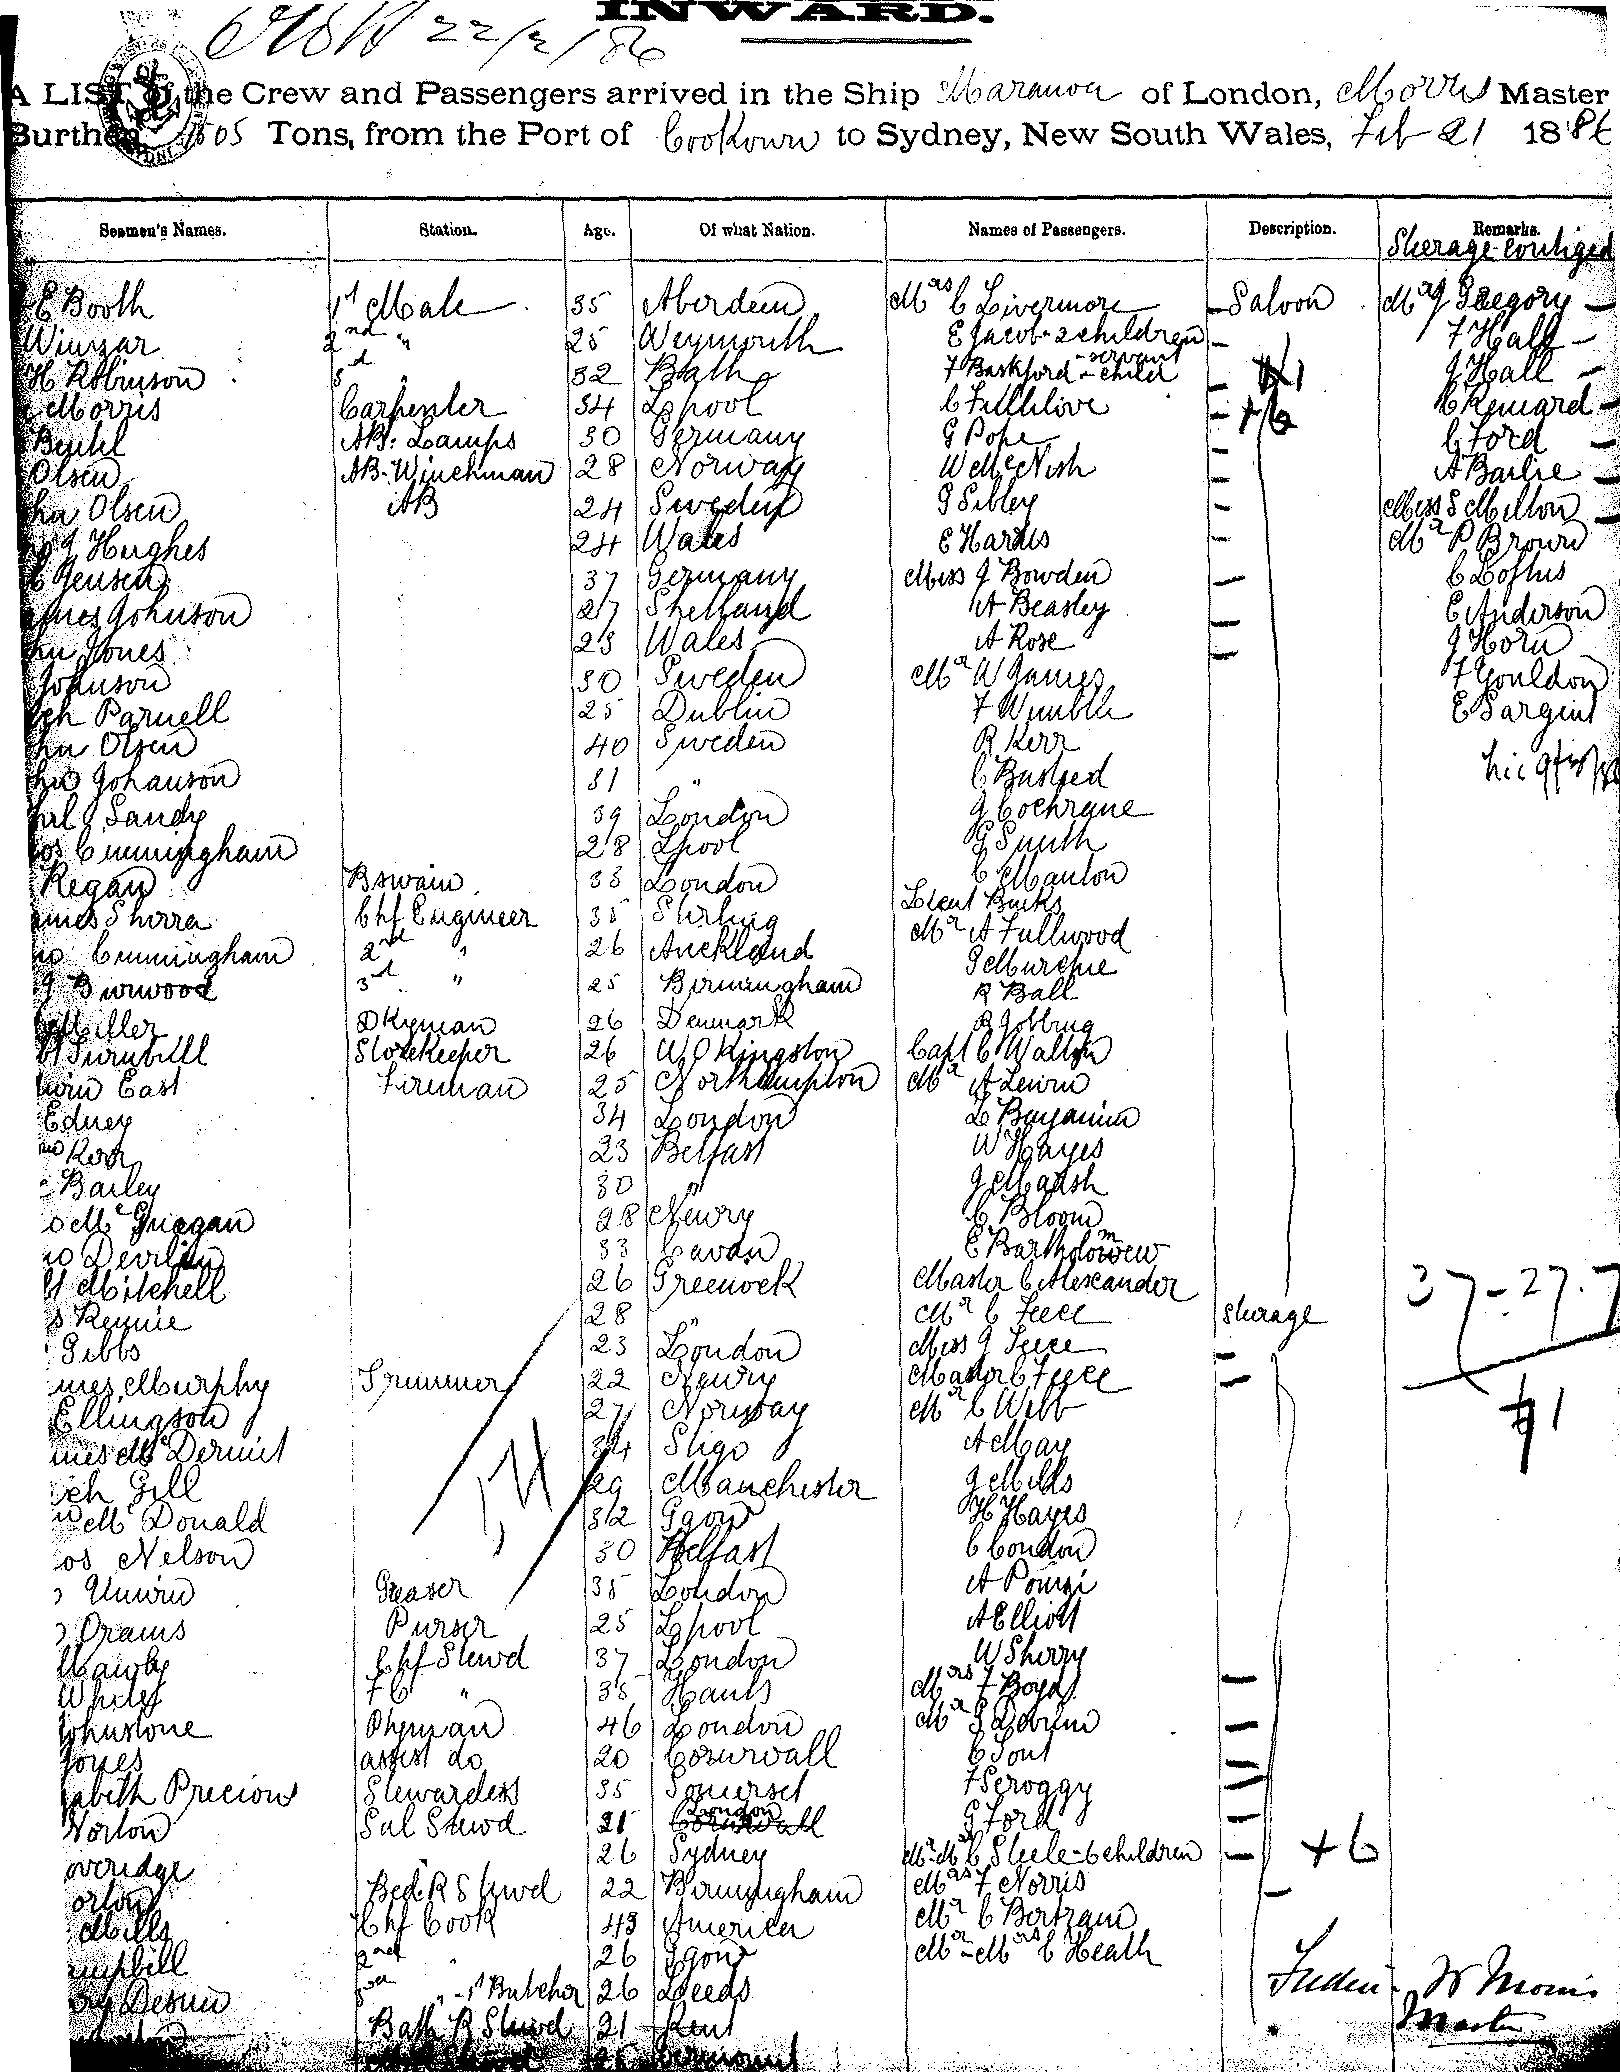 INWARD.
22/2/86
A LIST of the Crew and Passengers arrived in the Ship Maranoa of London, Morris Master
Burthen 1505 Tons, from the Port of Cooktown to Sydney, New South Wales, Feb 21 1886
Seamen's Names. Station. Age. Of what Nation. Names of Passengers. Description. Remarks.
Steerage contiged
E Booth 1st Mate 35 Aberdeen Mrs C Livermore Saloon Mr J Gregory
Winzar 2nd " 25 Weymouth E Jacob - 2 children F Hall
H Robinson 3d " 32 Bath F Bashford - servant - child J Hall
Morris Carpenter 34 Lpool C Fulllove C Renard
AB. Lamps 30 Germany G Pope C Ford
Olsen AB-Winchman 28 Norway W McNish A Barlie
Olsen AB 24 Sweden G Sibley Miss S Milton
J Hughes 24 Wales E Harris Mr P Brown
C Jensen 37 Germany Miss J Bowden C Loftus
ames Johnson 27 Shetland A Beasley E Anderson
hn Jones 23 Wales A Rose J Horn
Johnson 30 Sweden Mr W James F Gouldon
ph Parnell 25 Dublin F Wimble E Sargint
hn Olsen 40 Sweden R Kerr
Johanson 31 " C Busted
Sandy 39 London J Cochrane
os Cunningham 28 Lpool G Smith
Regan Bswain 33 London C Manton
ames Shirra Chf Engineer 35 Stirling Lieut Bucks
Cunningham 2nd " 26 Auckland Mr A Fullwood
J Burwood 3rd " 25 Birmingham G Murchie
Miller Dkyman 26 Denmark R Ball
R Jobbing
Turnbull Storekeeper 26 W O Kingston Capt C Walton
win East Fireman 25 Northampton Mr A Lewin
Edney 34 London L Benjamin
Kerr 23 Belfast W Hayes
Barley 30 " J Marsh
Mc Guegan 28 Newry C Bloom
Devlin 33 Cavan E Bartholomew
Mitchell 26 Greenock Master C Alexander
Rennie 28 " Mr C Feece Sterage
Gibbs 23 London Miss J Feece
mes Murphy Trimmer 22 Newry Master C Feece
Ellingson 27 Norway Mr C Webb
mes Mc Dermit 34 Sligo A May
ph Gill 29 Manchester J Mills
Mc Donald 32 H Hayes
os Nelson 30 Belfast C Condon
Unwin Greaser 35 London
Orams Purser 25 Lpool A Elliott
Mawby Chf Stewd 37 London W Sherry
White F C " 35 Hants Mrs F Boyd
Johnstone 46 London Mr
Jones assist do 20 Cornwall C Tout
abeth Precious Stewardess 35 Somerset F Scroggy
Norton Sal Stewd 21 London G Ford
overidge 26 Sydney C Steele - 6 children +6
orton Bed R Stewd 22 Birmingham Mrs F Norris
Mills Chf Cook 43 America Mr C Bertram
mpbell 2nd " 26 Mr - Mrs C Heath
" - 1st Butcher 26 Leeds
Bath R Stewd 21 Kent
37 - 27. 7
W Morris
Master